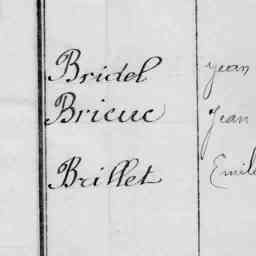 Bridel Jean
Brieuc Jean
Brillet Emile